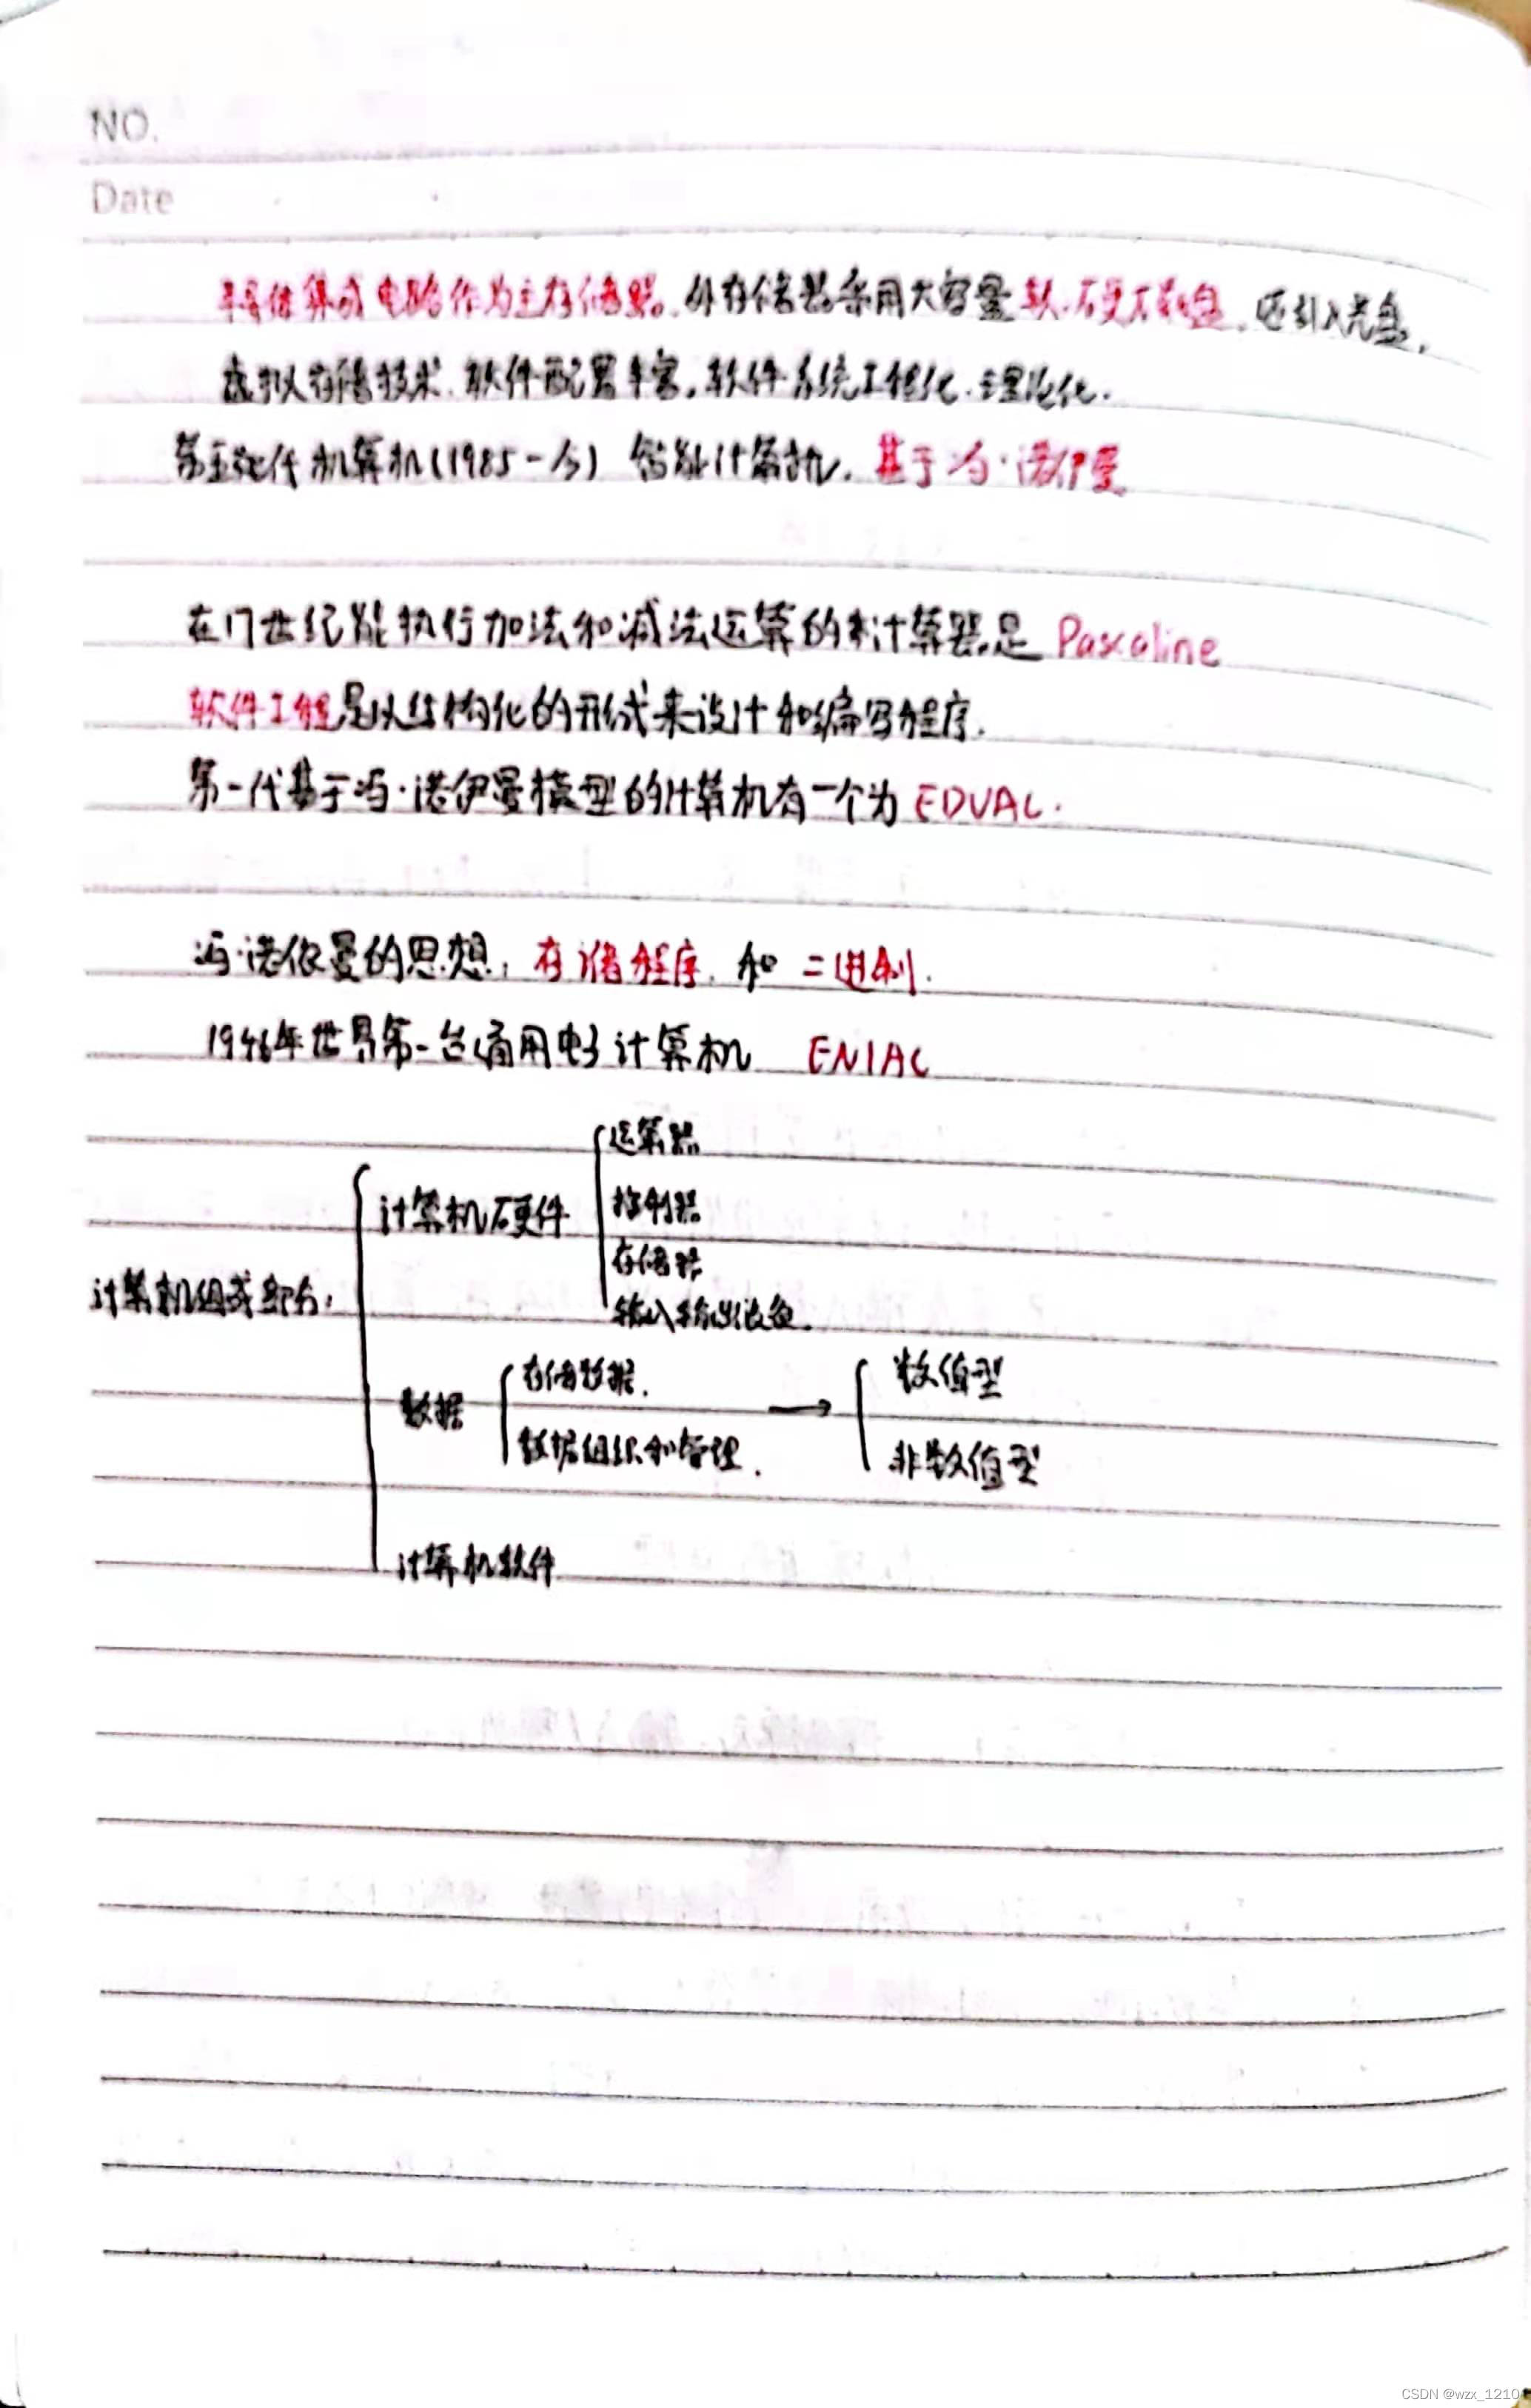 NO.
Date
半导体集成电路作为主存储器.外存储器采用大容量软.硬磁盘.还引入光盘.
虚拟存储技术.软件配置丰富,软件系统工程化.理论化.
第五代机算机(1985-今) 智能计算机.基于冯·诺伊曼
在17世纪能执行加法和减法运算的计算器是 Pascaline
软件工程是以结构化的形式来设计和编写程序.
第一代基于冯·诺伊曼模型的计算机有一个为 EDVAC.
冯·诺依曼的思想:存储程序.和 二进制.
1946年世界第一台通用电子计算机 ENIAC
运算器
计算机硬件 控制器
存储器
计算机组成部分:
输入输出设备.
存储数据. 数值型
数据
数据组织和管理. → 非数值型
计算机软件
CSDN @wzx_1210